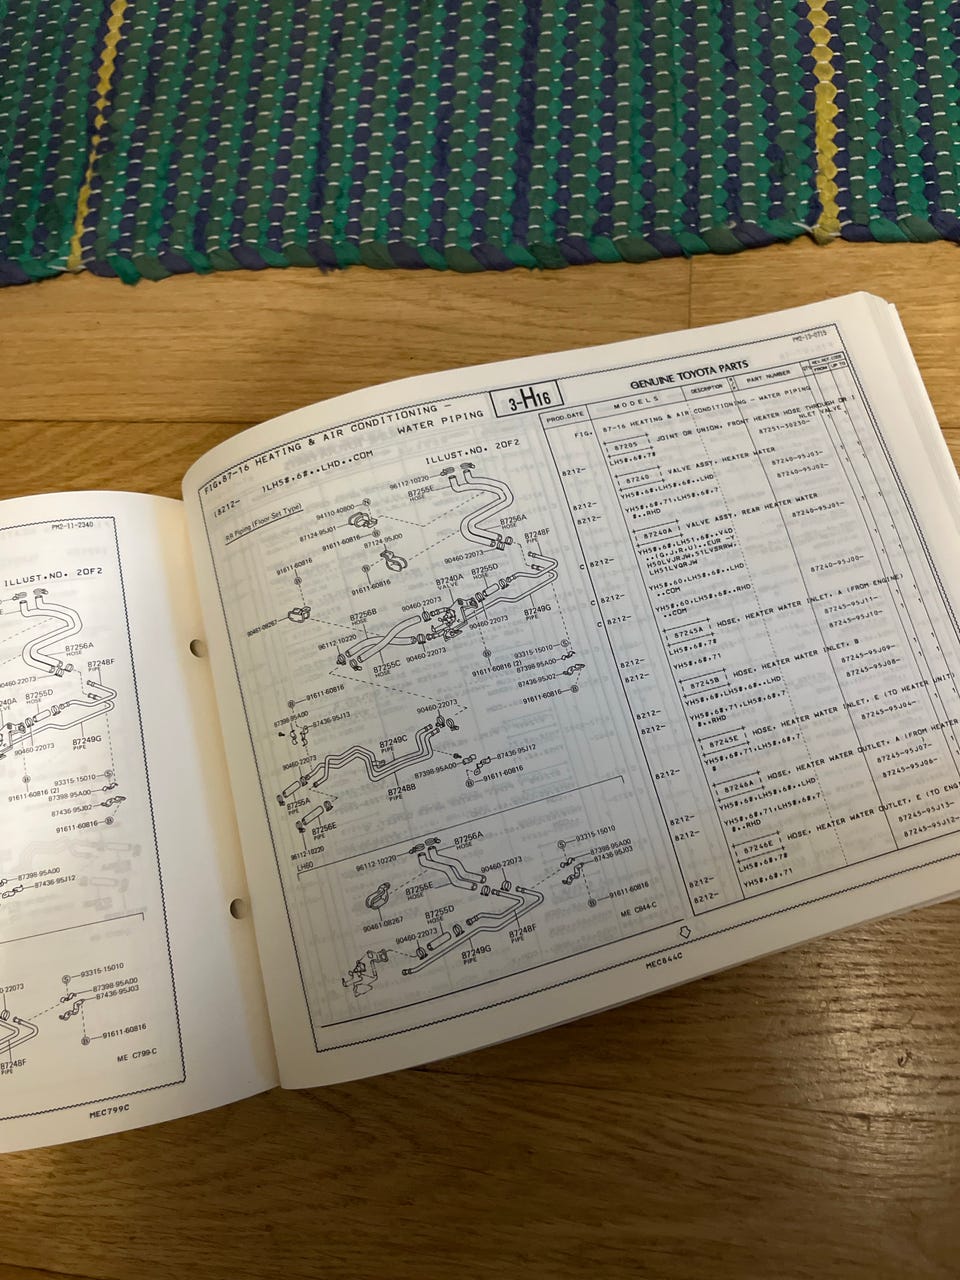 PM2-11-2340
ILLUST.NO. 2OF2
87256A
HOSE
87248F
PIPE
90460-22073
87255D
HOSE
87249G
PIPE
90460-22073
93315-15010
91611-60816 (2)
87398-95A00
87436-95J02
91611-60816
87398-95A00
87436-95J12
93315-15010
87398-95A00
87436-95J03
91611-60816
87248F
PIPE
ME C799-C
MEC799C
FIG.87-16 HEATING & AIR CONDITIONING -
WATER PIPING
3-H16
(8212-
)LH5#,6#..LHD..COM
ILLUST.NO. 2OF2
RR Piping (Floor Set Type)
96112-10220
87255E
HOSE
94110-40800
87124-95J01
91611-60816
87124-95J00
87256A
HOSE
87248F
PIPE
91611-60816
91611-60816
90460-22073
87240A
VALVE
87255D
HOSE
90461-08267
87256B
HOSE
90460-22073
90460-22073
87249G
PIPE
96112-10220
87255C
HOSE
90460-22073
91611-60816 (2)
93315-15010
87398-95A00
87436-95J02
91611-60816
91611-60816
87398-95A00
87436-95J13
90460-22073
87249C
PIPE
90460-22073
87398-95A00
87436-95J12
91611-60816
87248B
PIPE
87255A
HOSE
87256E
HOSE
96112-10220
LH60
96112-10220
87256A
HOSE
93315-15010
87398-95A00
87436-95J03
87255E
HOSE
90460-22073
90461-08267
87255D
HOSE
90460-22073
91611-60816
87248F
PIPE
87249G
PIPE
ME C844-C
MEC844C
PM2-13-0715
GENUINE TOYOTA PARTS
PROD.DATE
MODELS
DESCRIPTION
PART NUMBER
QTY
REV.REF.CODE
FROM
UP TO
FIG. 87-16 HEATING & AIR CONDITIONING - WATER PIPING
87205 ) JOINT OR UNION, FRONT HEATER HOSE THROUGH OR I
NLET VALVE
8212- LH5#,6#,7# 87251-30230-
87240 ) VALVE ASSY, HEATER WATER
8212- YH5#,6#,LH5#,6#..LHD 87240-95J03-
8212- YH5#,6#,71,LH5#,6#,7 87240-95J02-
#..RHD
87240A ) VALVE ASSY, REAR HEATER WATER
C 8212- YH5#,6#,LH51,6#..V4D 87240-95J01-
..(G,J,R,U)..EUR -Y
H50LVJRJW,51LVSRRW,
LH51LVQRJW
C 8212- YH5#,60,LH5#,6#..LHD
..COM
8212- YH5#,60,LH5#,6#..RHD 87240-95J00-
..COM
87245A ) HOSE, HEATER WATER INLET, A (FROM ENGINE)
8212- LH5#,6#,7# 87245-95J11-
8212- YH5#,6#,71 87245-95J10-
87245B ) HOSE, HEATER WATER INLET, B
8212- YH5#,6#,LH5#,6#..LHD 87245-95J09-
8212- YH5#,6#,71,LH5#,6#,7 87245-95J08-
#..RHD
87245E ) HOSE, HEATER WATER INLET, E (TO HEATER UNIT)
8212- YH5#,6#,71,LH5#,6#,7 87245-95J04-
#
87246A ) HOSE, HEATER WATER OUTLET, A (FROM HEATER
8212- YH5#,6#,LH5#,6#..LHD 87245-95J07-
8212- YH5#,6#,71,LH5#,6#,7 87245-95J06-
#..RHD
87246E ) HOSE, HEATER WATER OUTLET, E (TO ENG
8212- LH5#,6#,7# 87245-95J13-
8212- YH5#,6#,71 87245-95J12-